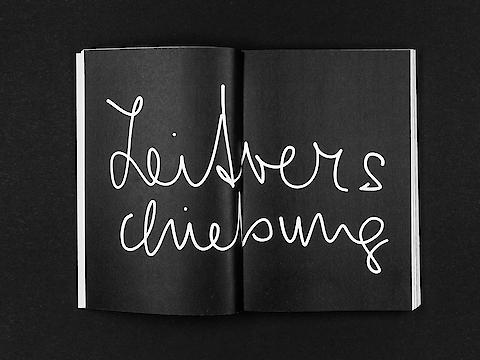 Zeitvers
chiebung